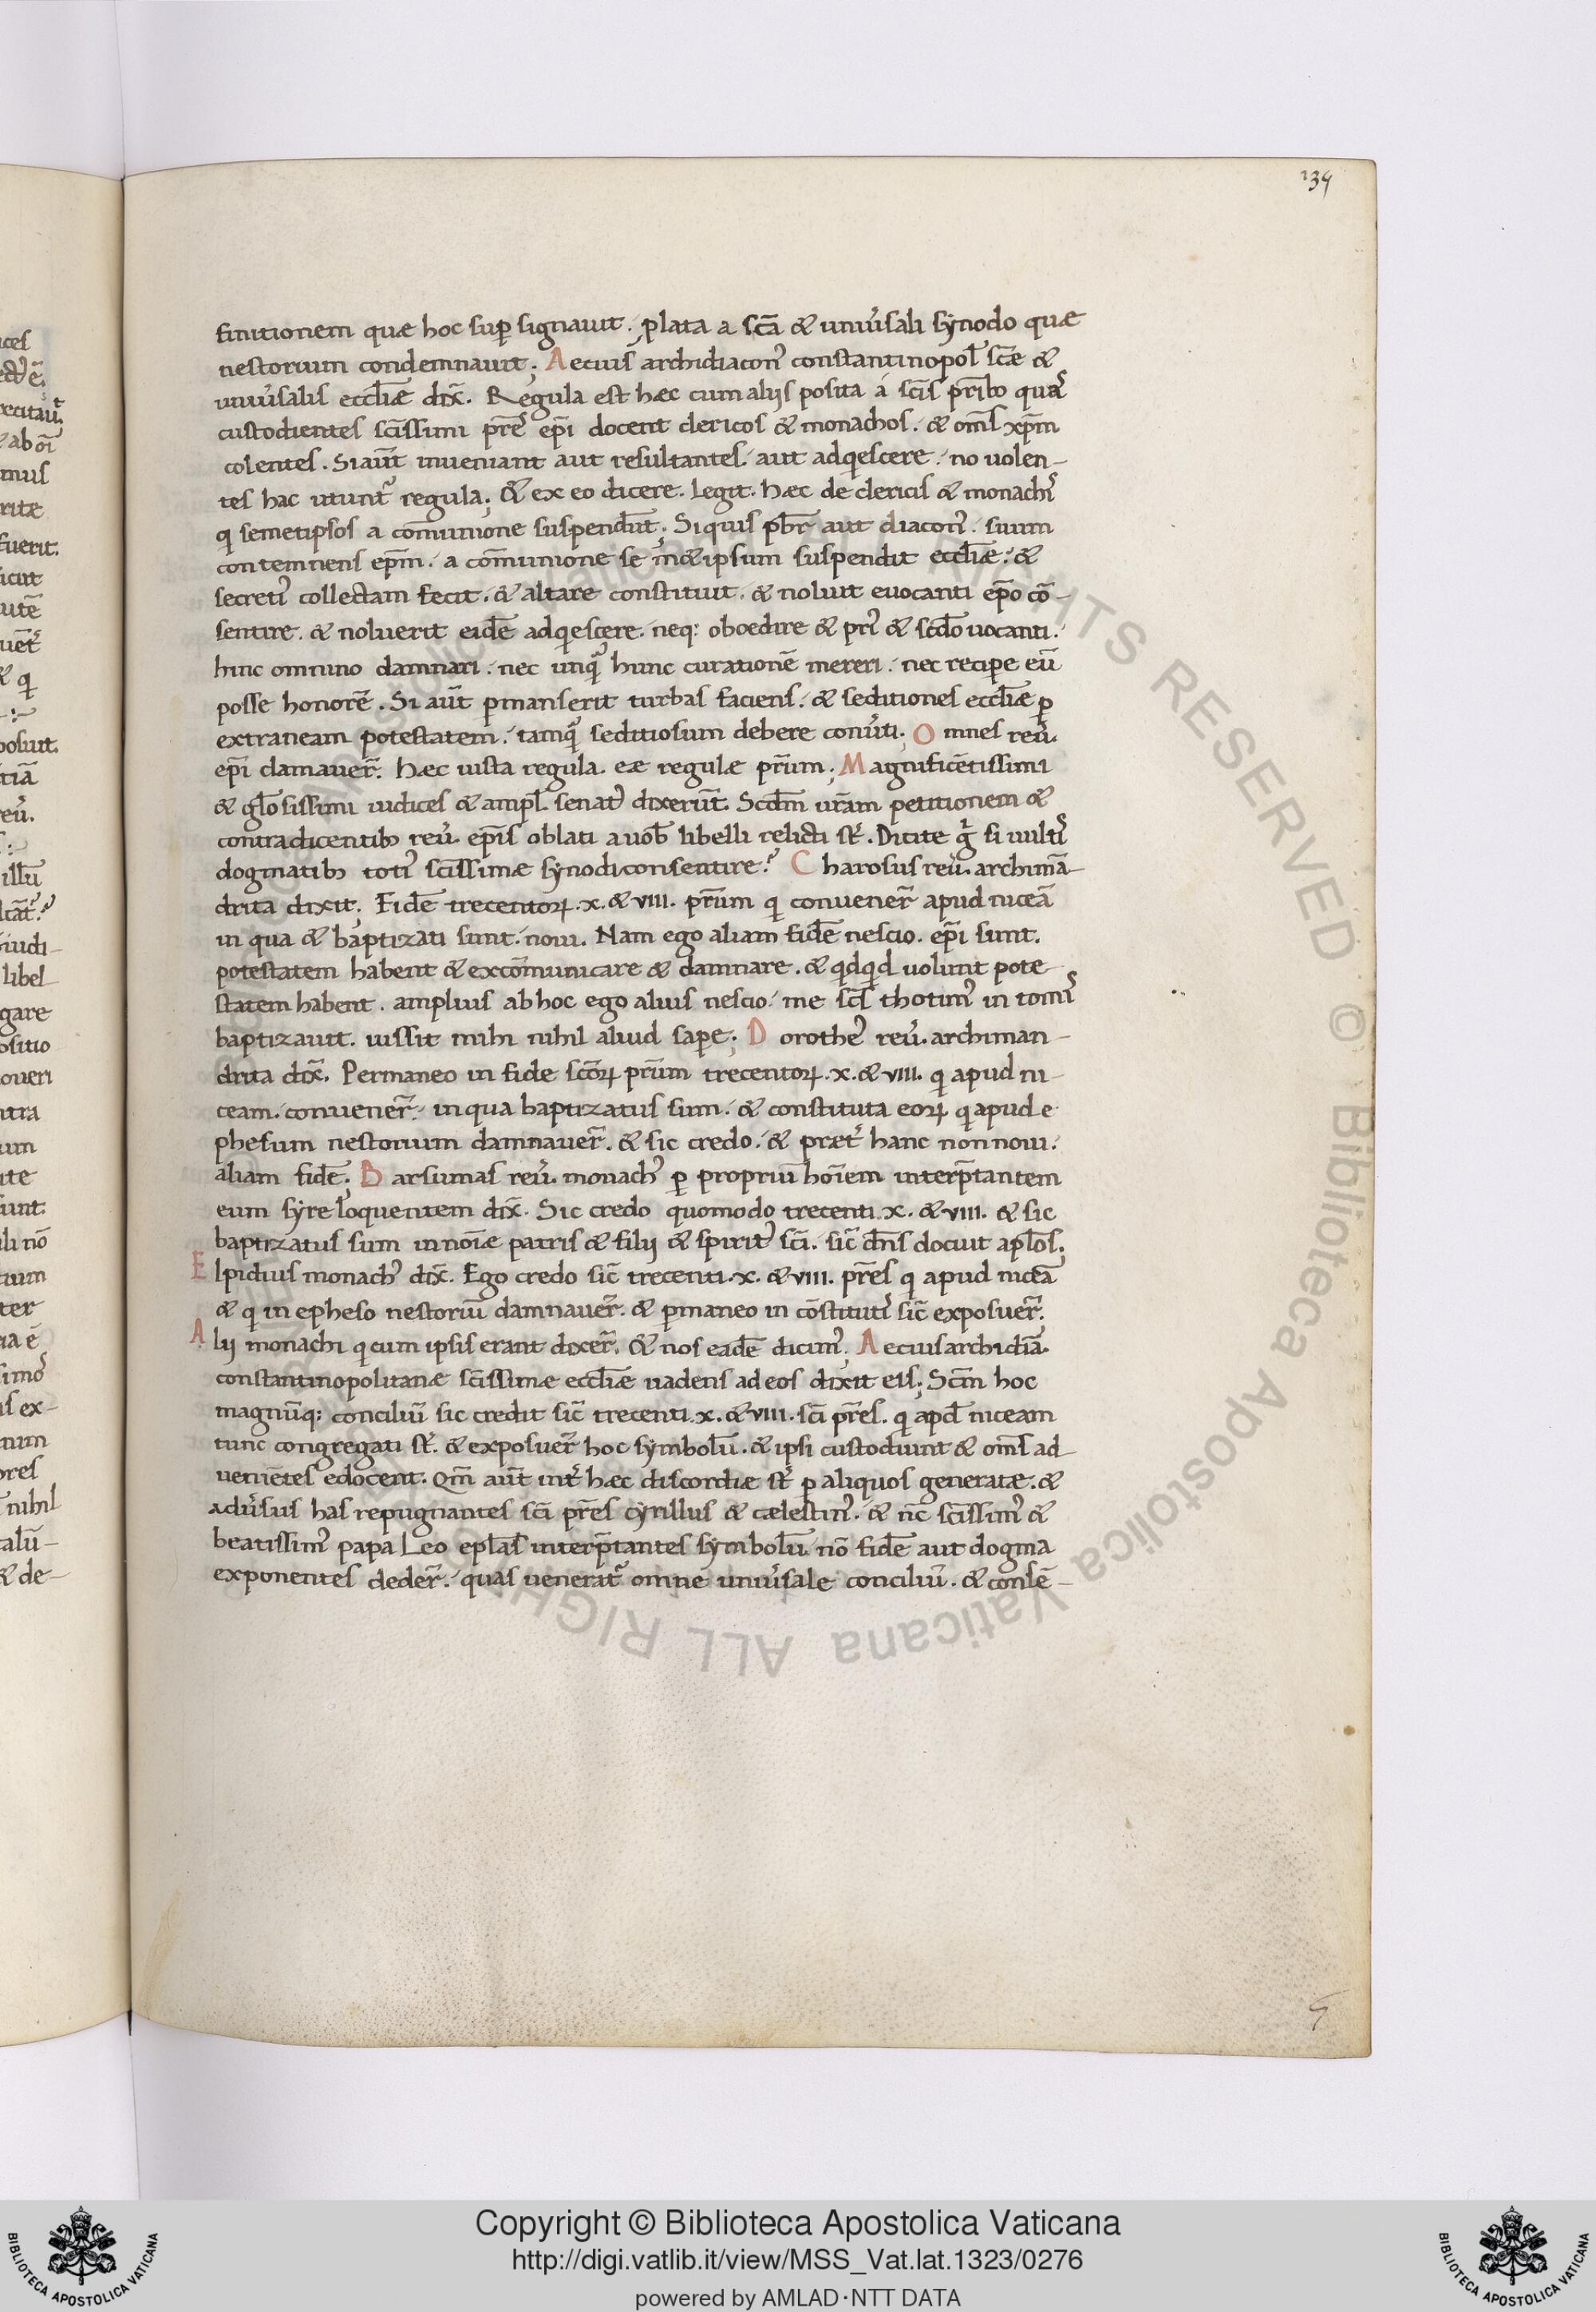 139
finitionem quæ hoc suꝑ signauit. ꝓlata a scã & uniu᷒sali sẏnodo quæ
nestorium condemnauit; Aetius archidiacon᷒ constantinopol̃ scæ̃ &
uniu᷒salis eccl̃iæ dix̃. Regula est hæc cum aliis posita á scĩs pr̃ib; quã
custodientes scĩssimi pr̃es ep̃i docent clericos & monachos. & om̃s xp̃m
colentes. Si aũt inueniant aut resultantes. aut adq̣escere. no uolen-
tes hac utunt᷒ regula; & ex eo dicere. legit. hæc de clericis & monach᷒
q̣ semetipsos a com̃unione suspendũt; Siquis pb̃r aut diacon᷒. suum
contemnens ep̃m. a com̃unione se m&ipsum suspendit eccl̃iæ. &
secret᷒ collectam fecit. & altare constituit. & noluit euocanti ep̃o cõ-
sentire. & noluerit eidẽ adq̣escere. neq: oboedire & pri᷒ & scd̃o uocanti.
hunc omnino damnari. nec unq̃ hunc curationẽ mereri. nec reciꝑe eũ
posse honorẽ. Si aũt ꝑmanserit turbas faciens. & seditiones eccl̃iæ ꝑ
extraneam potestatem. tamq̃ seditiosum debere conu᷒ti; Omnes reu᷒.
ep̃i clamauer̃. hæc iusta regula. eæ regulæ pr̃um; Magnificẽtissimi
& glõsissimi iudices & ampl̃. senat᷒ dixerũt. Scdm̃ ur̃am petitionem &
contradicentib; reu᷒. ep̃is oblati a uob̃ libelli relicti st̃. Dicite g᷒ si uult᷒
dogmatib; toti᷒ scĩssimæ sẏnodi consentire? Charosus reu᷒. archimã-
drita dixit; Fidẽ trecentoꝝ. x. & viii. pr̃um q̣ conuener̃ apud niceã
in qua & baptizati sunt. noui. Nam ego aliam fidẽ nescio. ep̃i sunt.
potestatem habent & excom̃unicare & damnare. & q̣dq̣d uolunt pote
statem habent. amplius ab hoc ego alius nescio. me scs̃ thotim᷒ in tom᷒
baptizauit. iussit mihi nihil aliud saꝑe; Dorothe᷒ reu᷒. archiman-
drita dix̃. Permaneo in fide scõꝝ pr̃um trecentoꝝ. x. & viii. q̣ apud ni-
ceam. conuener̃. in qua baptizatus sum. & constituta eoꝝ q̣ apud e
phesum nestorium damnauer̃. & sic credo. & præt᷒ hanc non noui.
aliam fidẽ; Barsumas reu᷒. monach᷒ ꝑ propriũ hoĩem interp̃tantem
eum sẏre loquentem dix̃. Sic credo quomodo trecenti. x. & viii. & sic
baptizatus sum in noĩæ patris & filii & spirit᷒ scĩ. sic̃ dñs docuit apl̃os;
Elpidius monach᷒ dix̃. Ego credo sic̃ trecenti. x. & viii. pr̃es q̣ apud niceã
& q̣ in epheso nestoriũ damnauer̃. & ꝑmaneo in cõstitut᷒ sic̃ exposuer̃;
Alii monachi q̣ cum ipsis erant dixer̃. & nos eadẽ dicim᷒; Aetius archidiã.
constantinopolitanæ scĩssimæ eccl̃iæ uadens ad eos dixit eis; Scm̃ hoc
magnũq: conciliũ sic credit sic̃ trecenti. x. & viii. scĩ pr̃es. q̣ apd̃ niceam
tunc congregati st̃. & exposuer̃ hoc sẏmbolũ. & ipsi custodiunt & om̃s ad
ueniẽtes edocent. Qm̃ aũt int᷒ hæc discordiæ st̃ ꝑ aliquos generatæ. &
adu᷒sus has repugnantes scĩ pr̃es cẏrillus & cælestin᷒. & nc̃ scĩssim᷒ &
beatissim᷒ papa Leo epl̃as interp̃tantes sẏmbolũ. nõ fidẽ aut dogma
exponentes deder̃. quas uenerat᷒ omne uniu᷒sale conciliũ. & consẽ-
Copyright © Biblioteca Apostolica Vaticana
http://digi.vatlib.it/view/MSS_Vat.lat.1323/0276
powered by AMLAD·NTT DATA